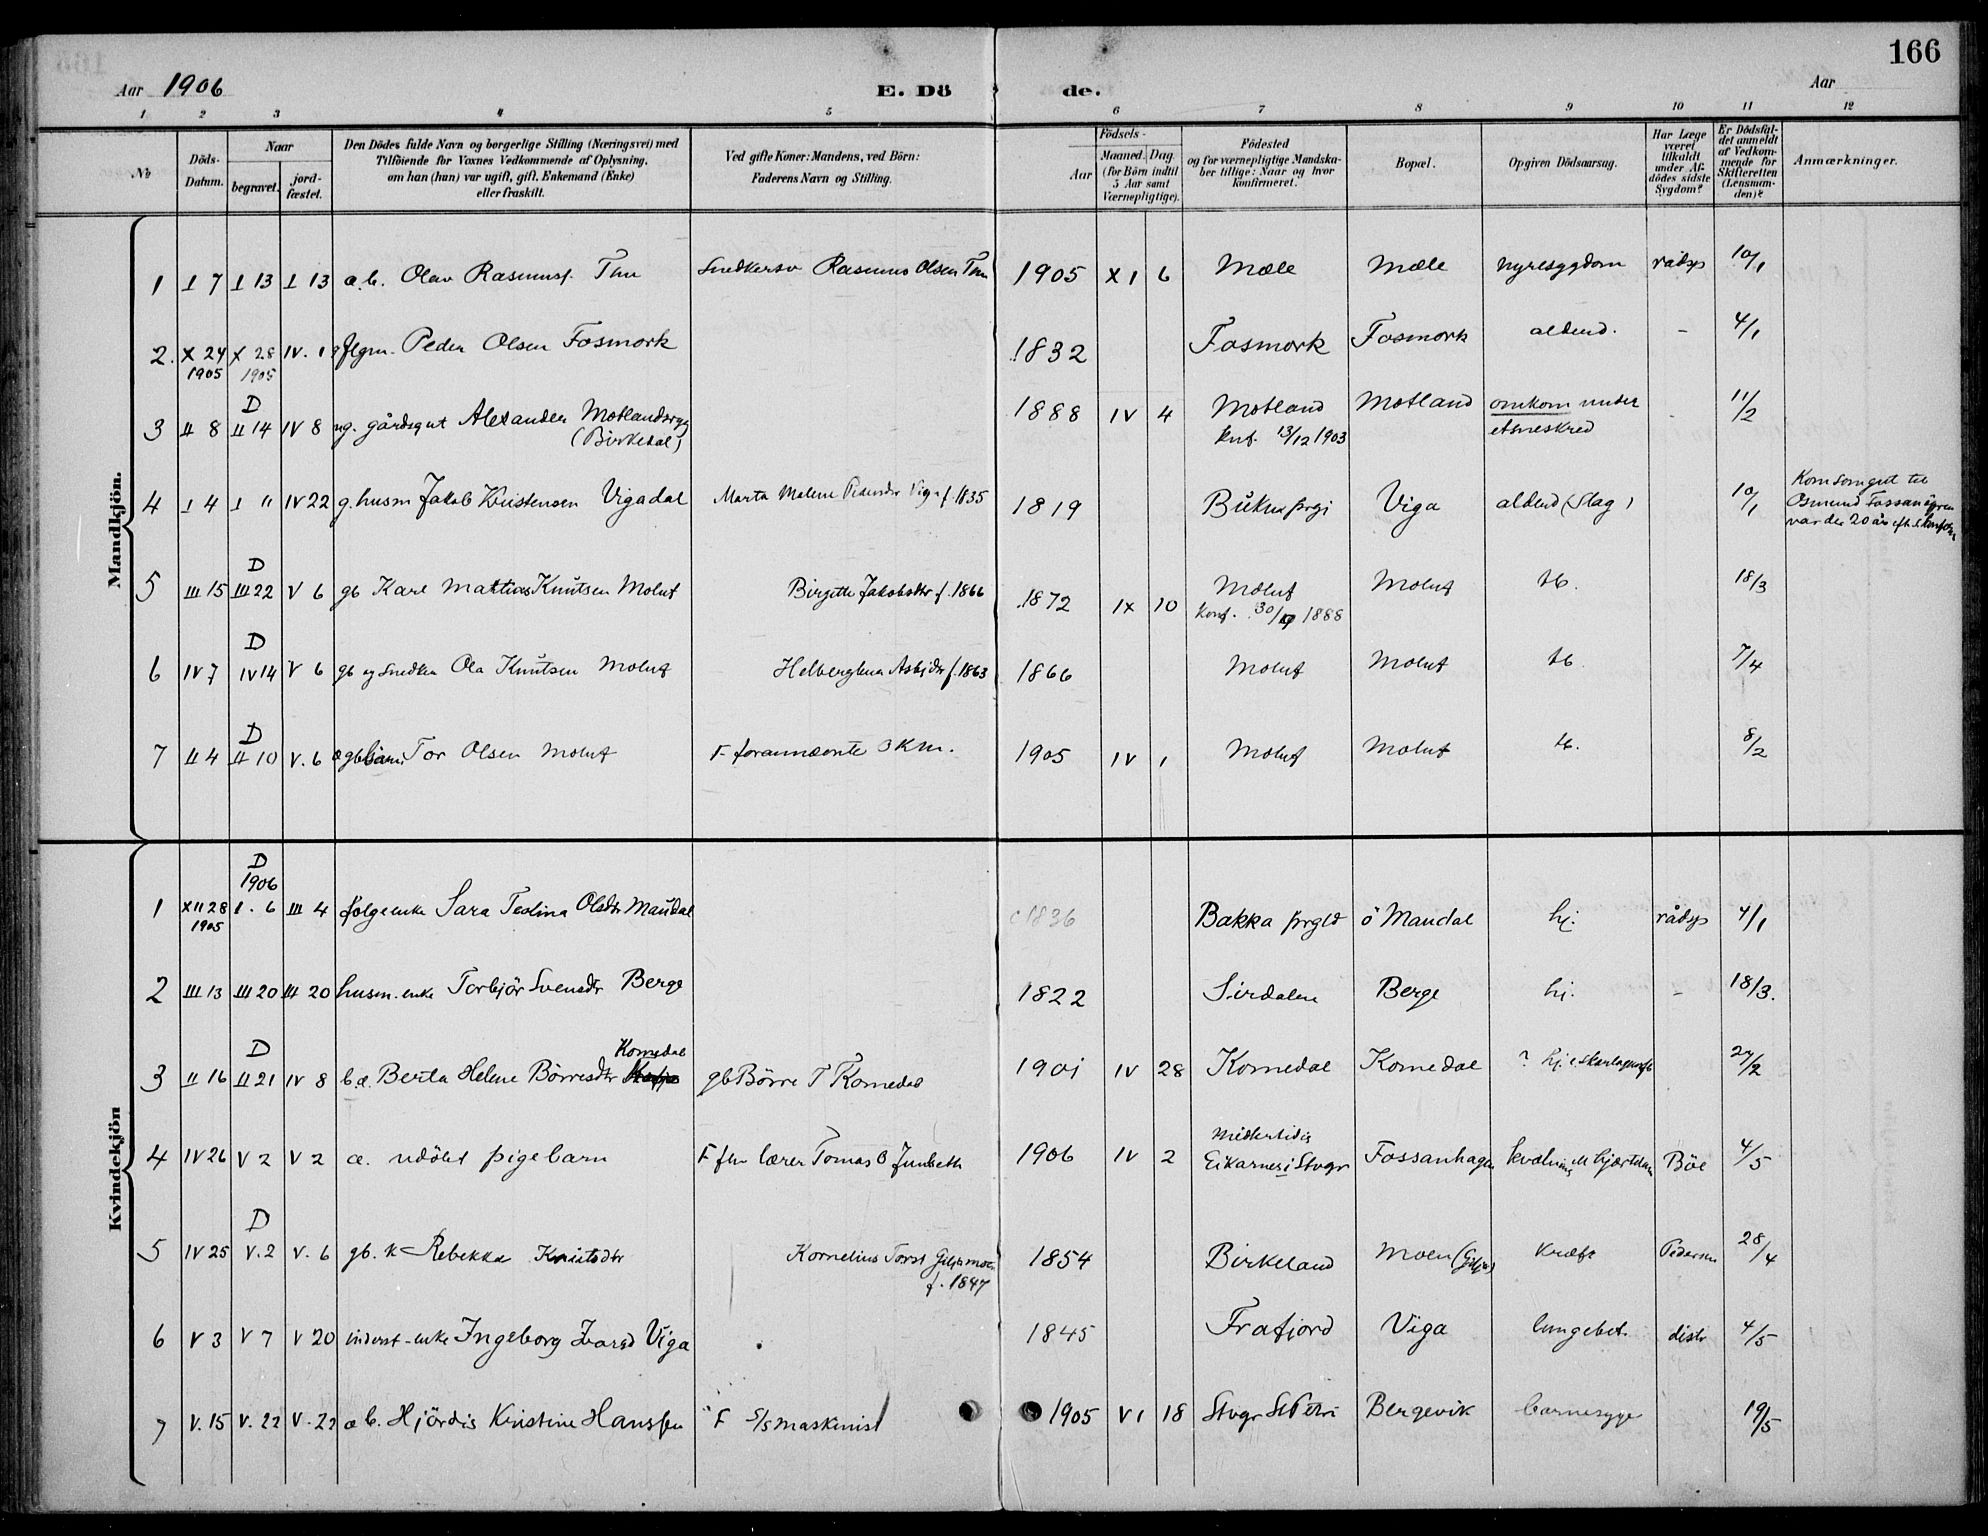 166
Aar 1906 E. Dö de. Aar
1 2 3 4 5 6 7 8 9 10 11 12
No
Döds-Datum.
Naar
begravet.
jord-fæstet.
Den Dödes fulde Navn og borgerlige Stilling (Næringsvei) med
Tilföiende for Voxnes Vedkommende af Oplysning,
om han (hun) var ugift, gift, Enkemand (Enke)
eller fraskilt.
Ved gifte Koner: Mandens, ved Börn:
Faderens Navn og Stilling.
Födsels-
Aar
Maaned. Dag
(for Börn indtil
5 Aar samt
Værnepligtige).
Födested
og for værnepligtige Mandska-
ber tillige: Naar og hvor
Konfirmeret.
Bopæl.
Opgiven Dödsaarsag.
Har Læge
været
tilkaldt
under Af-
dödes sidste
Sygdom?
Er Dödsfal-
det anmeldt
af Vedkom-
mende for
Skifteretten
(Lensman-
den)?
Anmærkninger.
Mandkjön.
1 I 7 I 13 I 13 æ.b. Olav Rasmuss. Tm Snedkersv Rasmus Olsen 1905 XI 6 Mæle Mæle nyresygdom rådsp 10/1
2. X 24 1905 X 28 1905 IV. 1 flgm. Peder Olsen Fosmork 1832 Fosmork Fosmork aldend. - 4/1
3 II 8 D II 14 IV 8 ug. gårdsgut Alexander (Birkedal) 1888 IV 4 Motland knf. 13/12 1903 Motland omkom under etsneskred - 11/2
4 I 4 I 11 IV 22 g. husm Jakob Kristensen Vigadal Marta Malene Pedersdr Viga f. 1835 1819 Bukn prgj Viga aldend (Slag) 10/1 Kom som gut til Osmund Fossan var der 20 år
5 III 15 D III 22 V 6 gb Karl Mattias Knutsen Molut Birgitte Jakobsdtr f. 1866 1872 IX 10 Molut konf. 30/9 1888 Molut tb. 18/3
6 IV 7 D IV 14 V 6 gb og snedker Ola Knutsen Molut f. 1863 1866 Molut Molut tb. 7/4
7 II 4 D II 10 V. 6 Tor Olsen Molut F forannævnte O K M. 1905 IV 1 Molut Molut tb. 8/2
Kvindekjön
1 XII 28 1905 D 1906 I. 6 III 4 folgeenke Sara Teolina Olsdtr Maudal c 1836 Bakka prgld ö Maudal hj. rådsp 4/1
2 III 13 III 20 III 20 husm. enke Torbjör Svensdtr Berge 1822 Sirdalen Berge hj. - 18/3.
3 II 16 D II 21 IV 8 b æ. Berta Helene Börresdtr Komedal gb Börre T Komedal 1901 IV 28 Komedal Komedal ? hj. e. 27/2
4 IV 26 V 2 V 2 æ. udöbt pigebarn F lærer Tomas O 1906 IV 2 midlertidig i Stvgr Fossanhagen Böe 4/5
5 IV 25 D V. 2 V. 6 gb. k Rebekka Knutsdtr Kornelius Torst f. 1847 1854 Birkeland Moen (Gilja) kræft Pedersen 28/4
6 V 3 V 7 V 20 inderst-enke Ingeborg Viga 1845 Frafjord Viga lungebet. distr 4/5
7 V. 15 V. 22 V. 22 æ b. Hjördis Kristine Hanssen F S/S maskinist 1905 VI 18 Stvgr St Petri Bergevik barnesyge 19/5